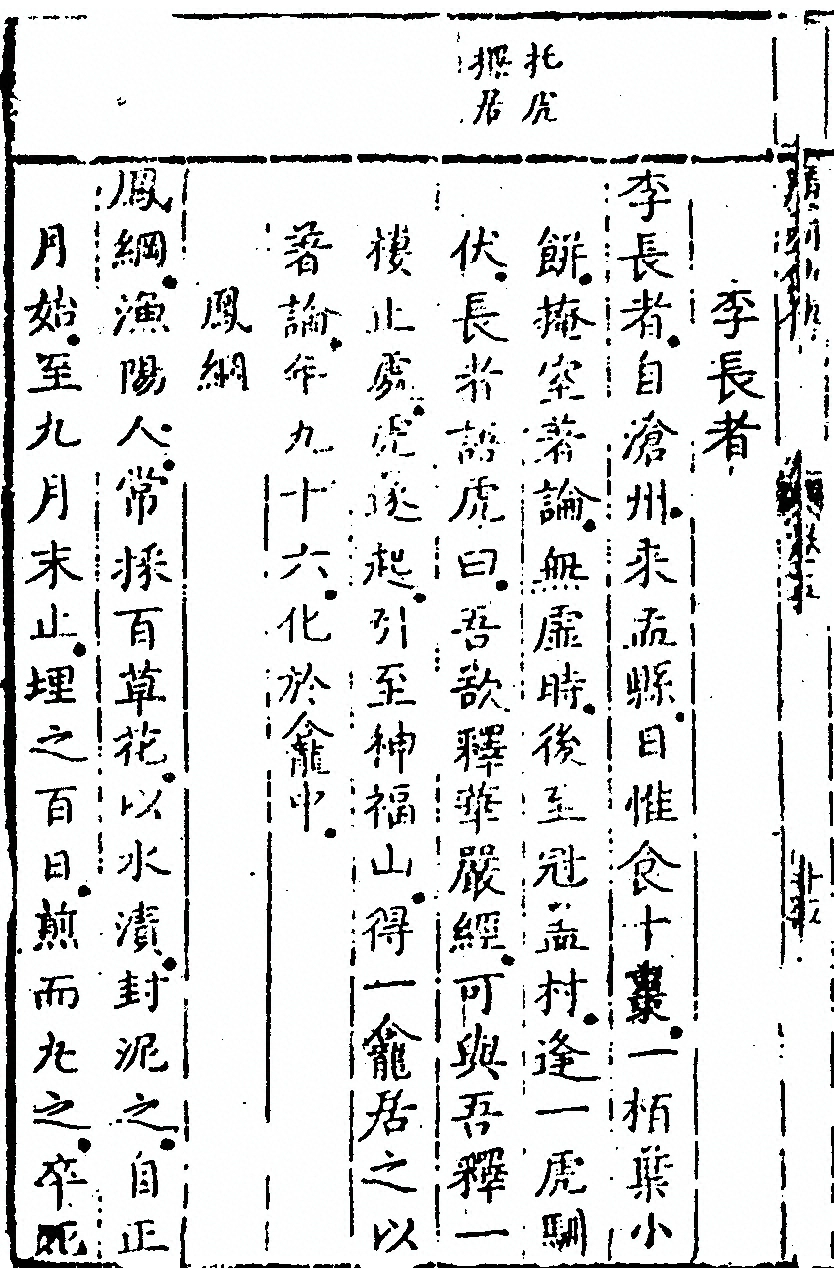 托虎
撰居
李長者
李長者自滄州来孟縣日惟食十棗一栢葉小
餅掩室著論無虛時後至冠盖村逢一虎馴
伏長者語虎曰吾欲釋華嚴經可與吾釋一
棲止處虎遂起引至神福山得一龕居之以
著論年九十六化於龕中
鳳綱
鳳綱漁陽人常採百草花以水漬封泥之自正
月始至九月末止埋之百日煎而丸之卒死